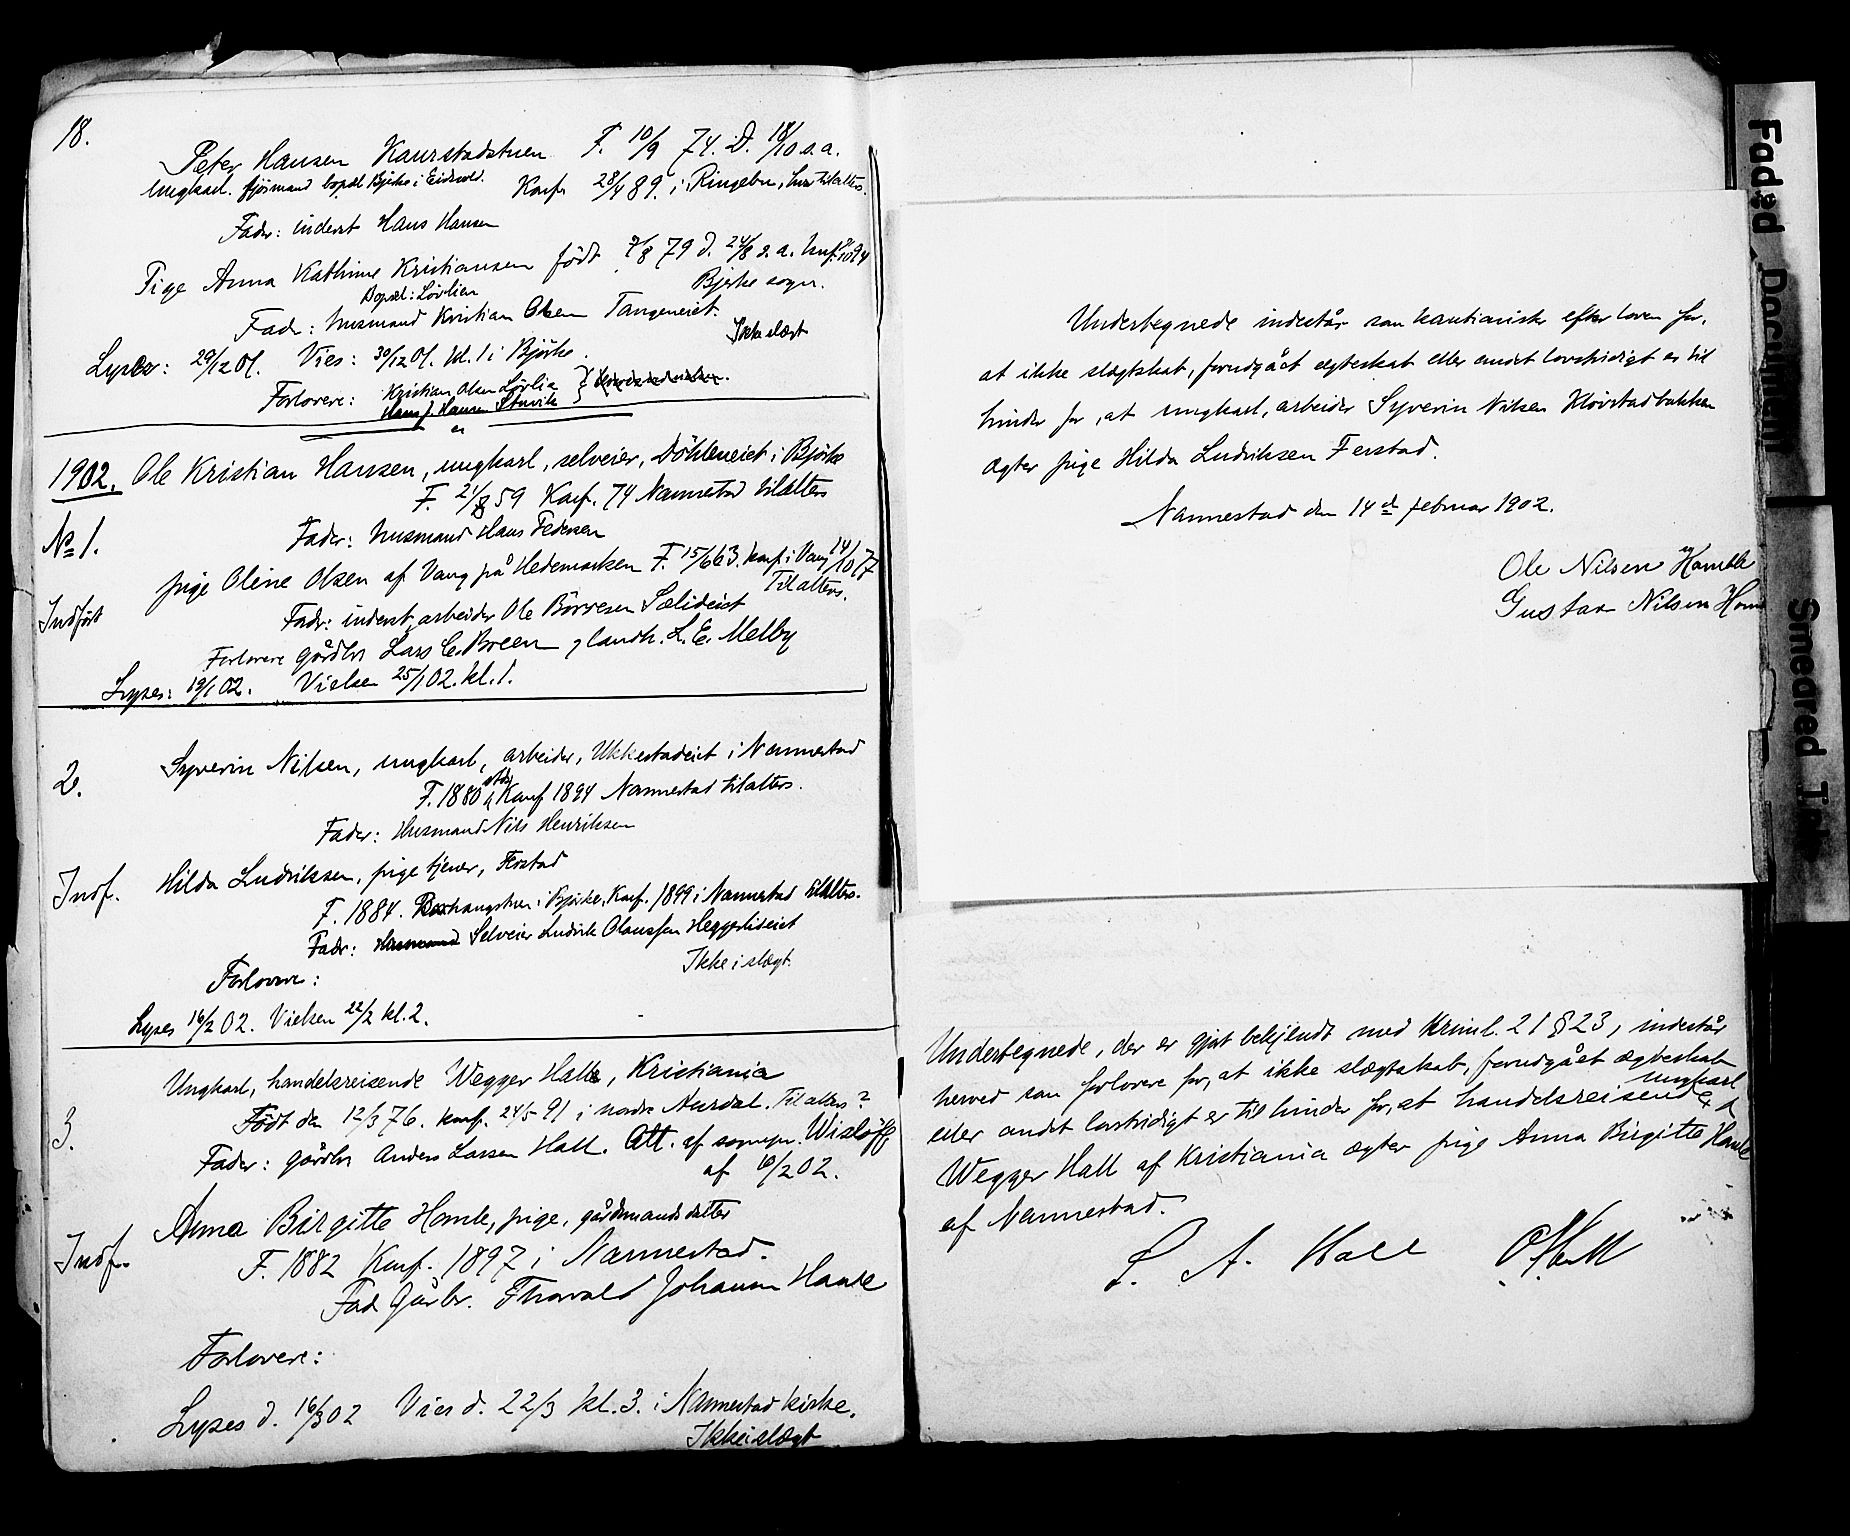 18.
Peter Hansen Kaurstadstuen F. 10/9 74. D. 18/10 s.a.
Ungkarl. fjösmand bopæl Bjerke i Eidsvold. Konf. 28/4 89. i Ringebu, tilalters.
Fader: inderst Hans Hansen
Pige Anna Kathinie Kristiansen født 7/8 79 d. 24/8 s.a. konf.
Bopæl: Lövlien Bjerke sogn.
Fader: husmand Kristian Olsen Tangeneiet.
Ikke slægt
Lyser: 29/12 01. Vies: 30/12 01. kl. 1 i Björke.
Forlovere: Kristian Olsen Lövlie
Hans J. Hansen Stuvik
1902. Ole Kristian Hansen, ungkarl, selveier, Döhleneiet i Björke
F. 21/8 59 Konf. 74 Nannestad tilalters
No 1. Fader: husmand Hans Pedersen
pige Oline Olsen af Vang på Hedemarken F. 15/6 63. konf. i Vang 14/10 77
Tilalters.
Indført Fader: inderst, arbeider Ole Börresen Sælideiet
Forlovere gårdbr Lars C. Breen, landh. L. E. Melby
Lyses: 19/1 02. Vielsen 25/1 02. kl. 1.
2. Syverin Nilsen, ungkarl, arbeider, Ukkestadeiet i Nannestad
F. 1880 Konf 1894 Nannestad tilalters.
Fader: Husmand Nils Henriksen
Indf. Hilda Ludviksen, pige tjener, Ferstad
F. 1884. i Björke, Konf. 1899 i Nannestad tilalters.
Fader: Husmand Selveier Ludvik Olaussen Heggerlideiet
Ikke i slægt.
Forlovere:
Lyses 16/2 02. Vielsen 22/2 kl. 2.
3. Ungkarl, handelsreisende Wegger Hall, Kristiania
Født den 12/3 76. konf. 24/5 91 i nordre Aurdal. Til alters?
Fader: gårdbr Anders Larsen Hall. Att. af sognepr. Wisløff,
af 6/2 02.
Anna Birgitte Homle, pige, gårdmandsdatter
Indf. F. 1882 Konf. 1897 i Nannestad.
Fad. Gårbr. Thorvald Johansen Homle
Forlovere:
Lyses d. 16/3 02 Vies d. 22/3 kl. 3. i Nannestad kirke.
Ikke i slægt
Undertegnede indestår som kautionister efter loven for,
at ikke slægtskab, forudgået ægteskab eller andet lovstridigt er til
hinder for, at ungkarl, arbeider Syverin Nilsen Kløvstadbakken
ægter pige Hilda Ludviksen Ferstad.
Nannestad den 14de februar 1902.
Ole Nilsen Homble
Gustav Nilsen Hom
Undertegnede, der er gjort bekjendt med Kriml. 21 § 23, indestår
herved som forlovere for, at ikke slægtskab, forudgået ægteskab
eller andet lovstridigt er til hinder for, at handelsreisende ungkarl
Wegger Hall af Kristiania ægter pige Anna Birgitte Homle
af Nannestad.
L. A. Hall O Hall
Faded Document
Smeared Ink